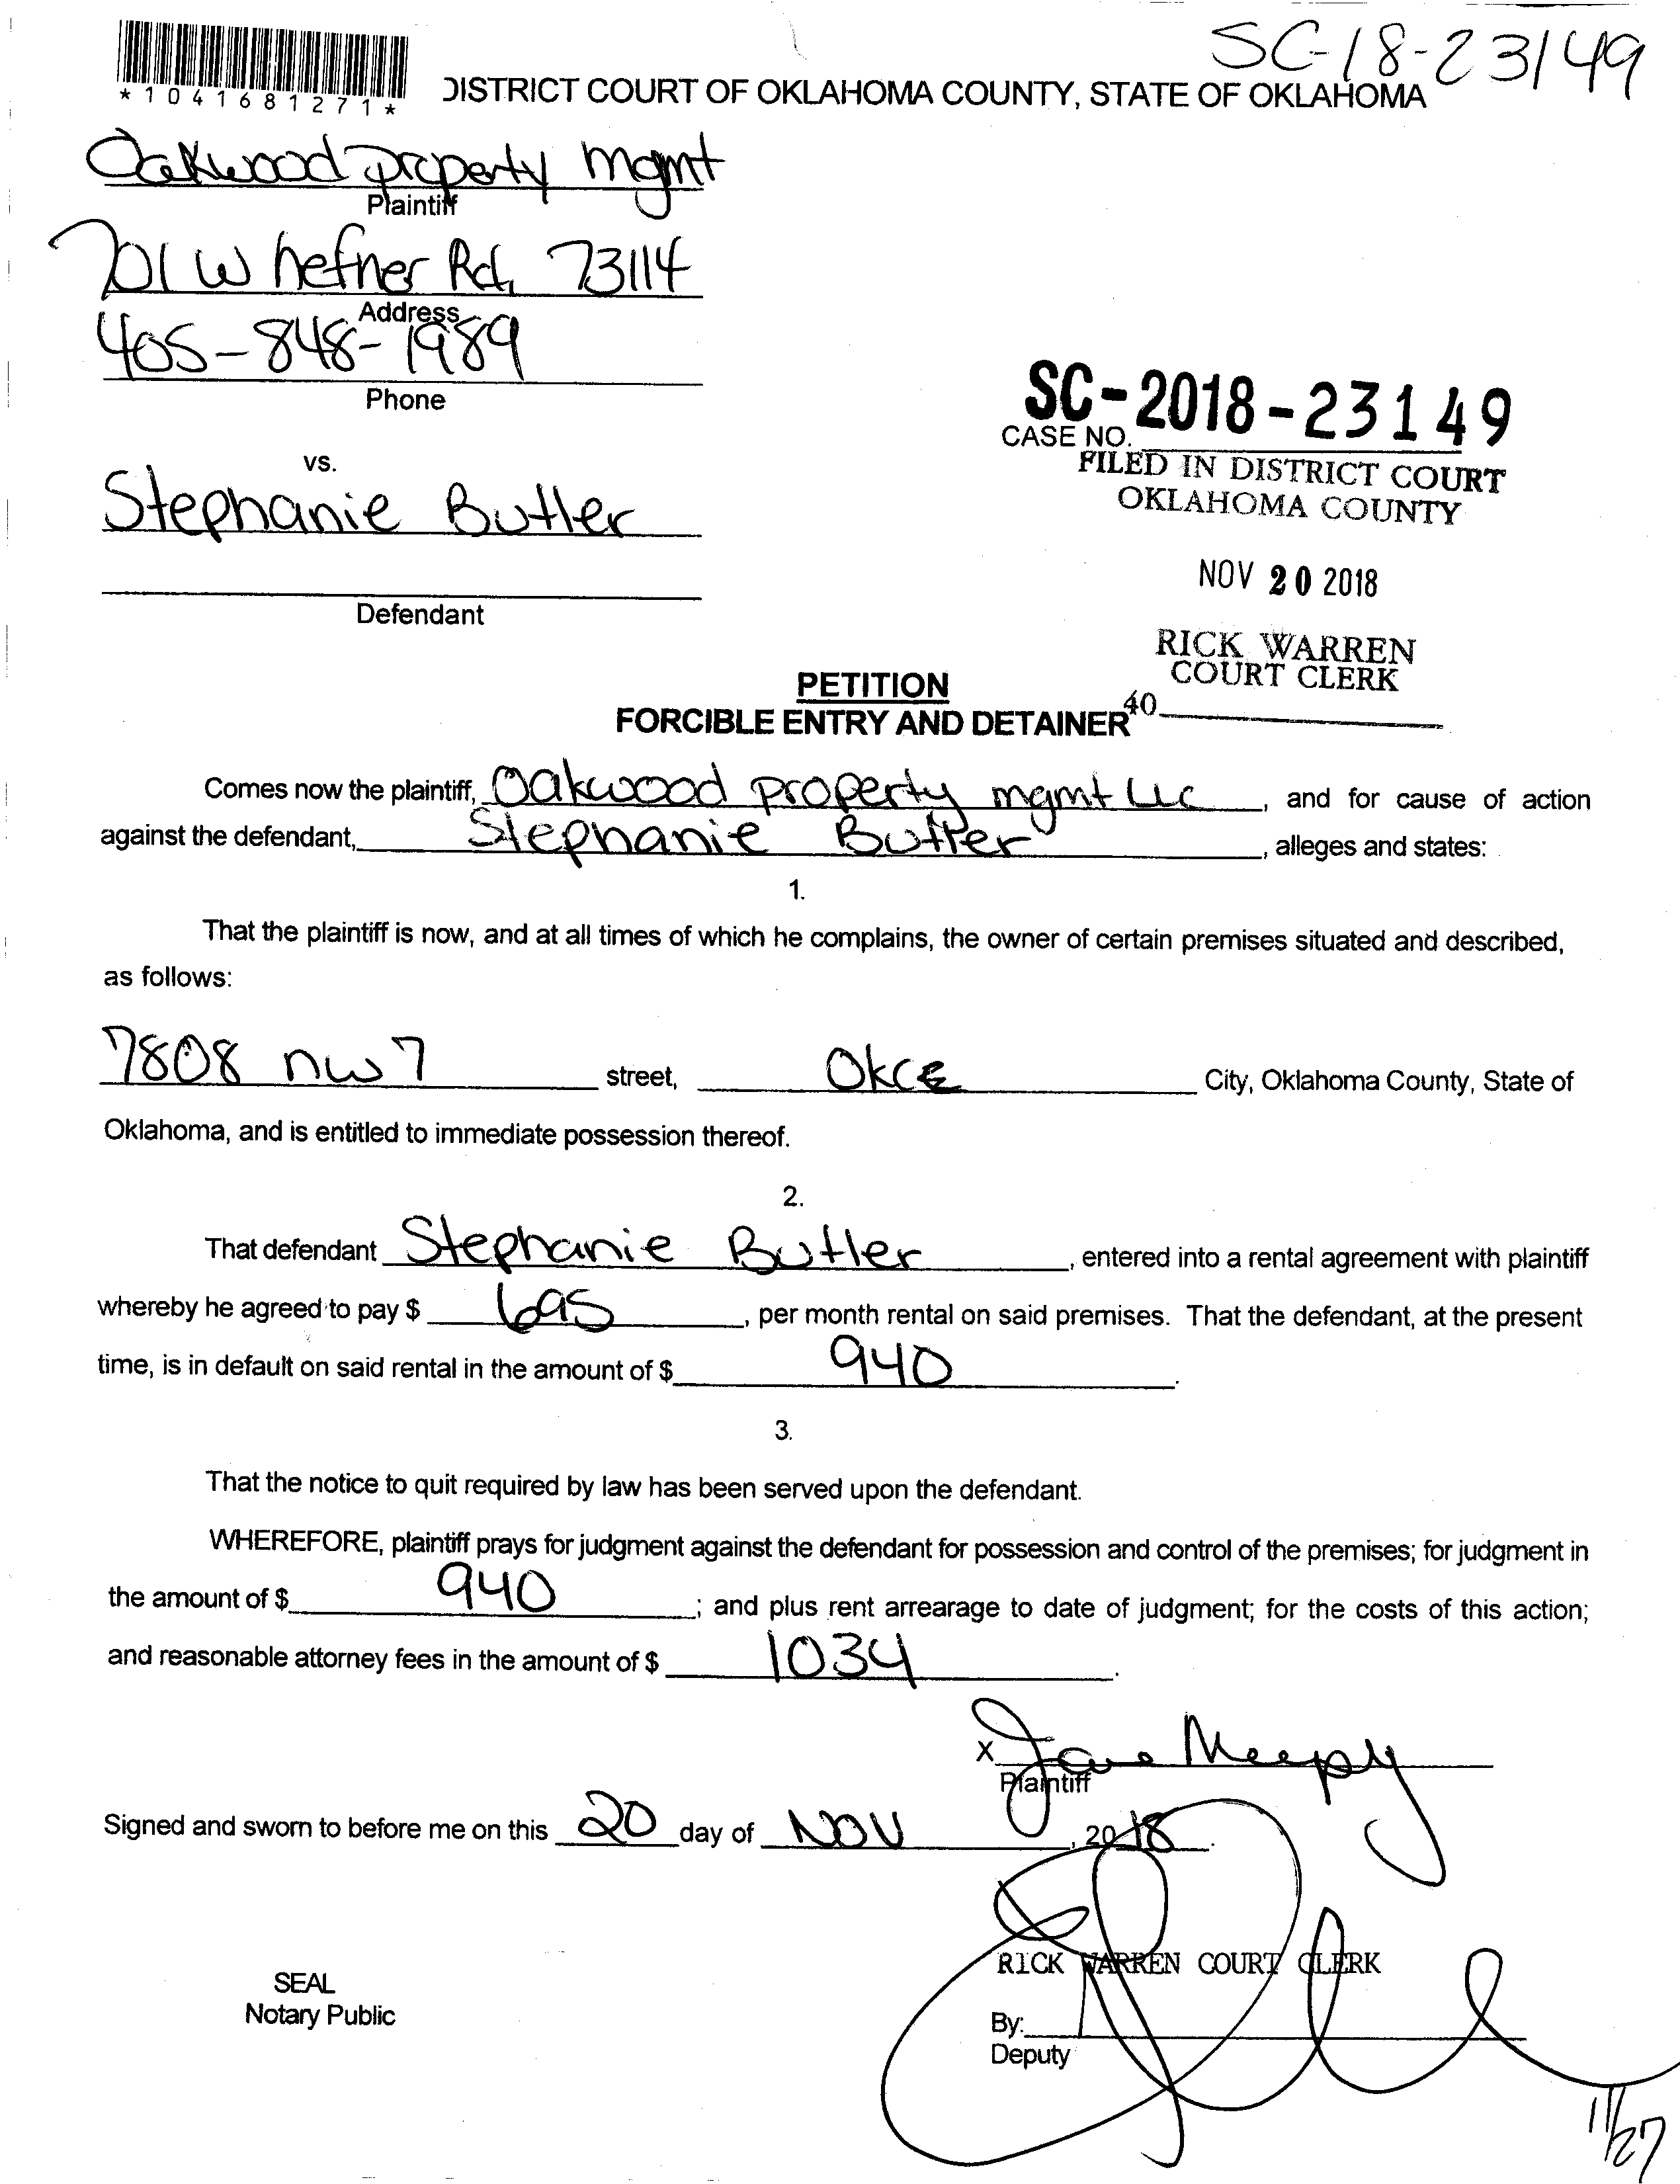 SC-18-23149
*1041681271*
DISTRICT COURT OF OKLAHOMA COUNTY, STATE OF OKLAHOMA
Oakwood property mgmt
Plaintiff
701 W hefner Rd, 73114
Address
405-848-1989
Phone
SC-2018-23149
CASE NO.
FILED IN DISTRICT COURT
OKLAHOMA COUNTY
vs.
Stephanie Butler
NOV 20 2018
Defendant
RICK WARREN
COURT CLERK
40
PETITION
FORCIBLE ENTRY AND DETAINER
Comes now the plaintiff, Oakwood property mgmt LLC, and for cause of action
against the defendant, Stephanie Butler, alleges and states:
1.
That the plaintiff is now, and at all times of which he complains, the owner of certain premises situated and described,
as follows:
7808 nw 7 street, OKC City, Oklahoma County, State of
Oklahoma, and is entitled to immediate possession thereof.
2.
That defendant Stephanie Butler, entered into a rental agreement with plaintiff
whereby he agreed to pay $ 695, per month rental on said premises. That the defendant, at the present
time, is in default on said rental in the amount of $ 940.
3.
That the notice to quit required by law has been served upon the defendant.
WHEREFORE, plaintiff prays for judgment against the defendant for possession and control of the premises; for judgment in
the amount of $ 940; and plus rent arrearage to date of judgment; for the costs of this action;
and reasonable attorney fees in the amount of $ 1034.
X
Plaintiff
Signed and sworn to before me on this 20 day of NOV, 2018.
RICK WARREN COURT CLERK
SEAL
Notary Public
By:
Deputy
11/27